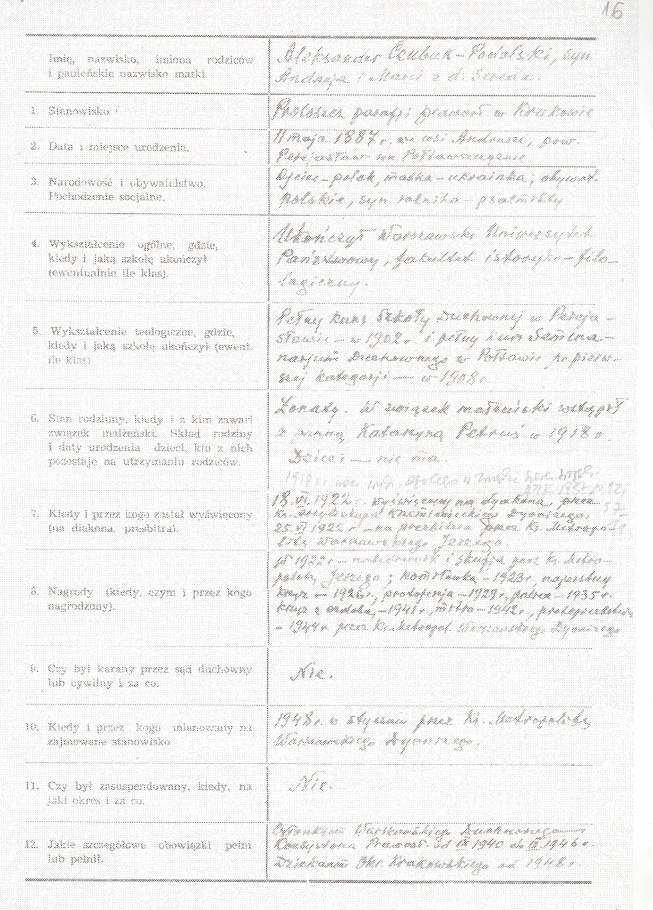 16
Imię, nazwisko, imiona rodziców
i panieńskie nazwisko matki.
Aleksander Czubuk-Podolski, syn
Andrzeja i Marii z d. Sereda.
1. Stanowisko
Proboszcz parafji prawosł. w Krakowie
2. Data i miejsce urodzenia.
11 maja 1887 r. we wsi Andrusze, pow.
Perejasław na Połtawszczyźnie
3. Narodowość i obywatelstwo.
Pochodzenie socjalne.
Ojciec-polak, matka-ukrainka; obywat.
polskie, syn rolnika-psalmisty
4. Wykształcenie ogólne, gdzie,
kiedy i jaką szkołę ukończył
(ewentualnie ile klas).
Ukończył Warszawski Uniwersytet
Państwowy, fakultet istoryko-filo-
logiczny.
5. Wykształcenie teologiczne, gdzie,
kiedy i jaką szkołę ukończył (ewent.
ile klas)
Pełny kurs Szkoły Duchownej w Pereja-
sławiu - w 1902 r. i pełny kurs Semina-
narjum Duchownego w Połtawie po pierw-
szej kategorji — w 1908 r.
6. Stan rodzinny, kiedy i z kim zawarł
związek małżeński. Skład rodziny
i daty urodzenia dzieci, kto z nich
pozostaje na utrzymaniu rodziców.
Żonaty. W związek małżeński wstąpił
z panną Katarzyną Petruś w 1918 r
Dzieci - nie ma.
7. Kiedy i przez kogo został wyświęcony
(na diakona, presbitra).
18.VI.1922 r. wyświęcony na dyakona, przez
Ks. Arcybiskupa Krzemienieckiego Dyonizego,
25.VI.1922 r - na prezbitera przez Ks. Metropo-
litę Warszawskiego Jerzego.
8. Nagrody (kiedy, czym i przez kogo
nagrodzony).
1922 r - nabedrennik i skufja przez Ks. Metro-
politę Jerzego; kamiławka - 1923 r, napierśny
krzyż - 1926 r, protojereja - 1929 r, palica - 1935 r.
krzyż z ozdobą - 1941 r, mitra - 1942 r,
- 1944 r. przez Ks. Metropol. Warszawskiego Dyonizego
9. Czy był karany przez sąd duchowny
lub cywilny i za co.
Nie.
10. Kiedy i przez kogo mianowany na
zajmowane stanowisko
1948 r. w styczniu przez Ks. Metropolitę
Warszawskiego Dyonizego.
11. Czy był zasuspendowany, kiedy, na
jaki okres i za co.
Nie.
12. Jakie szczegółowe obowiązki pełni
lub pełnił.
Członkiem Warszawskiego Duchownego
Konsystorza Prawosł. od IX 1940 do III 1946 r.
Dziekanem Okr. Krakowskiego od 1948 r.